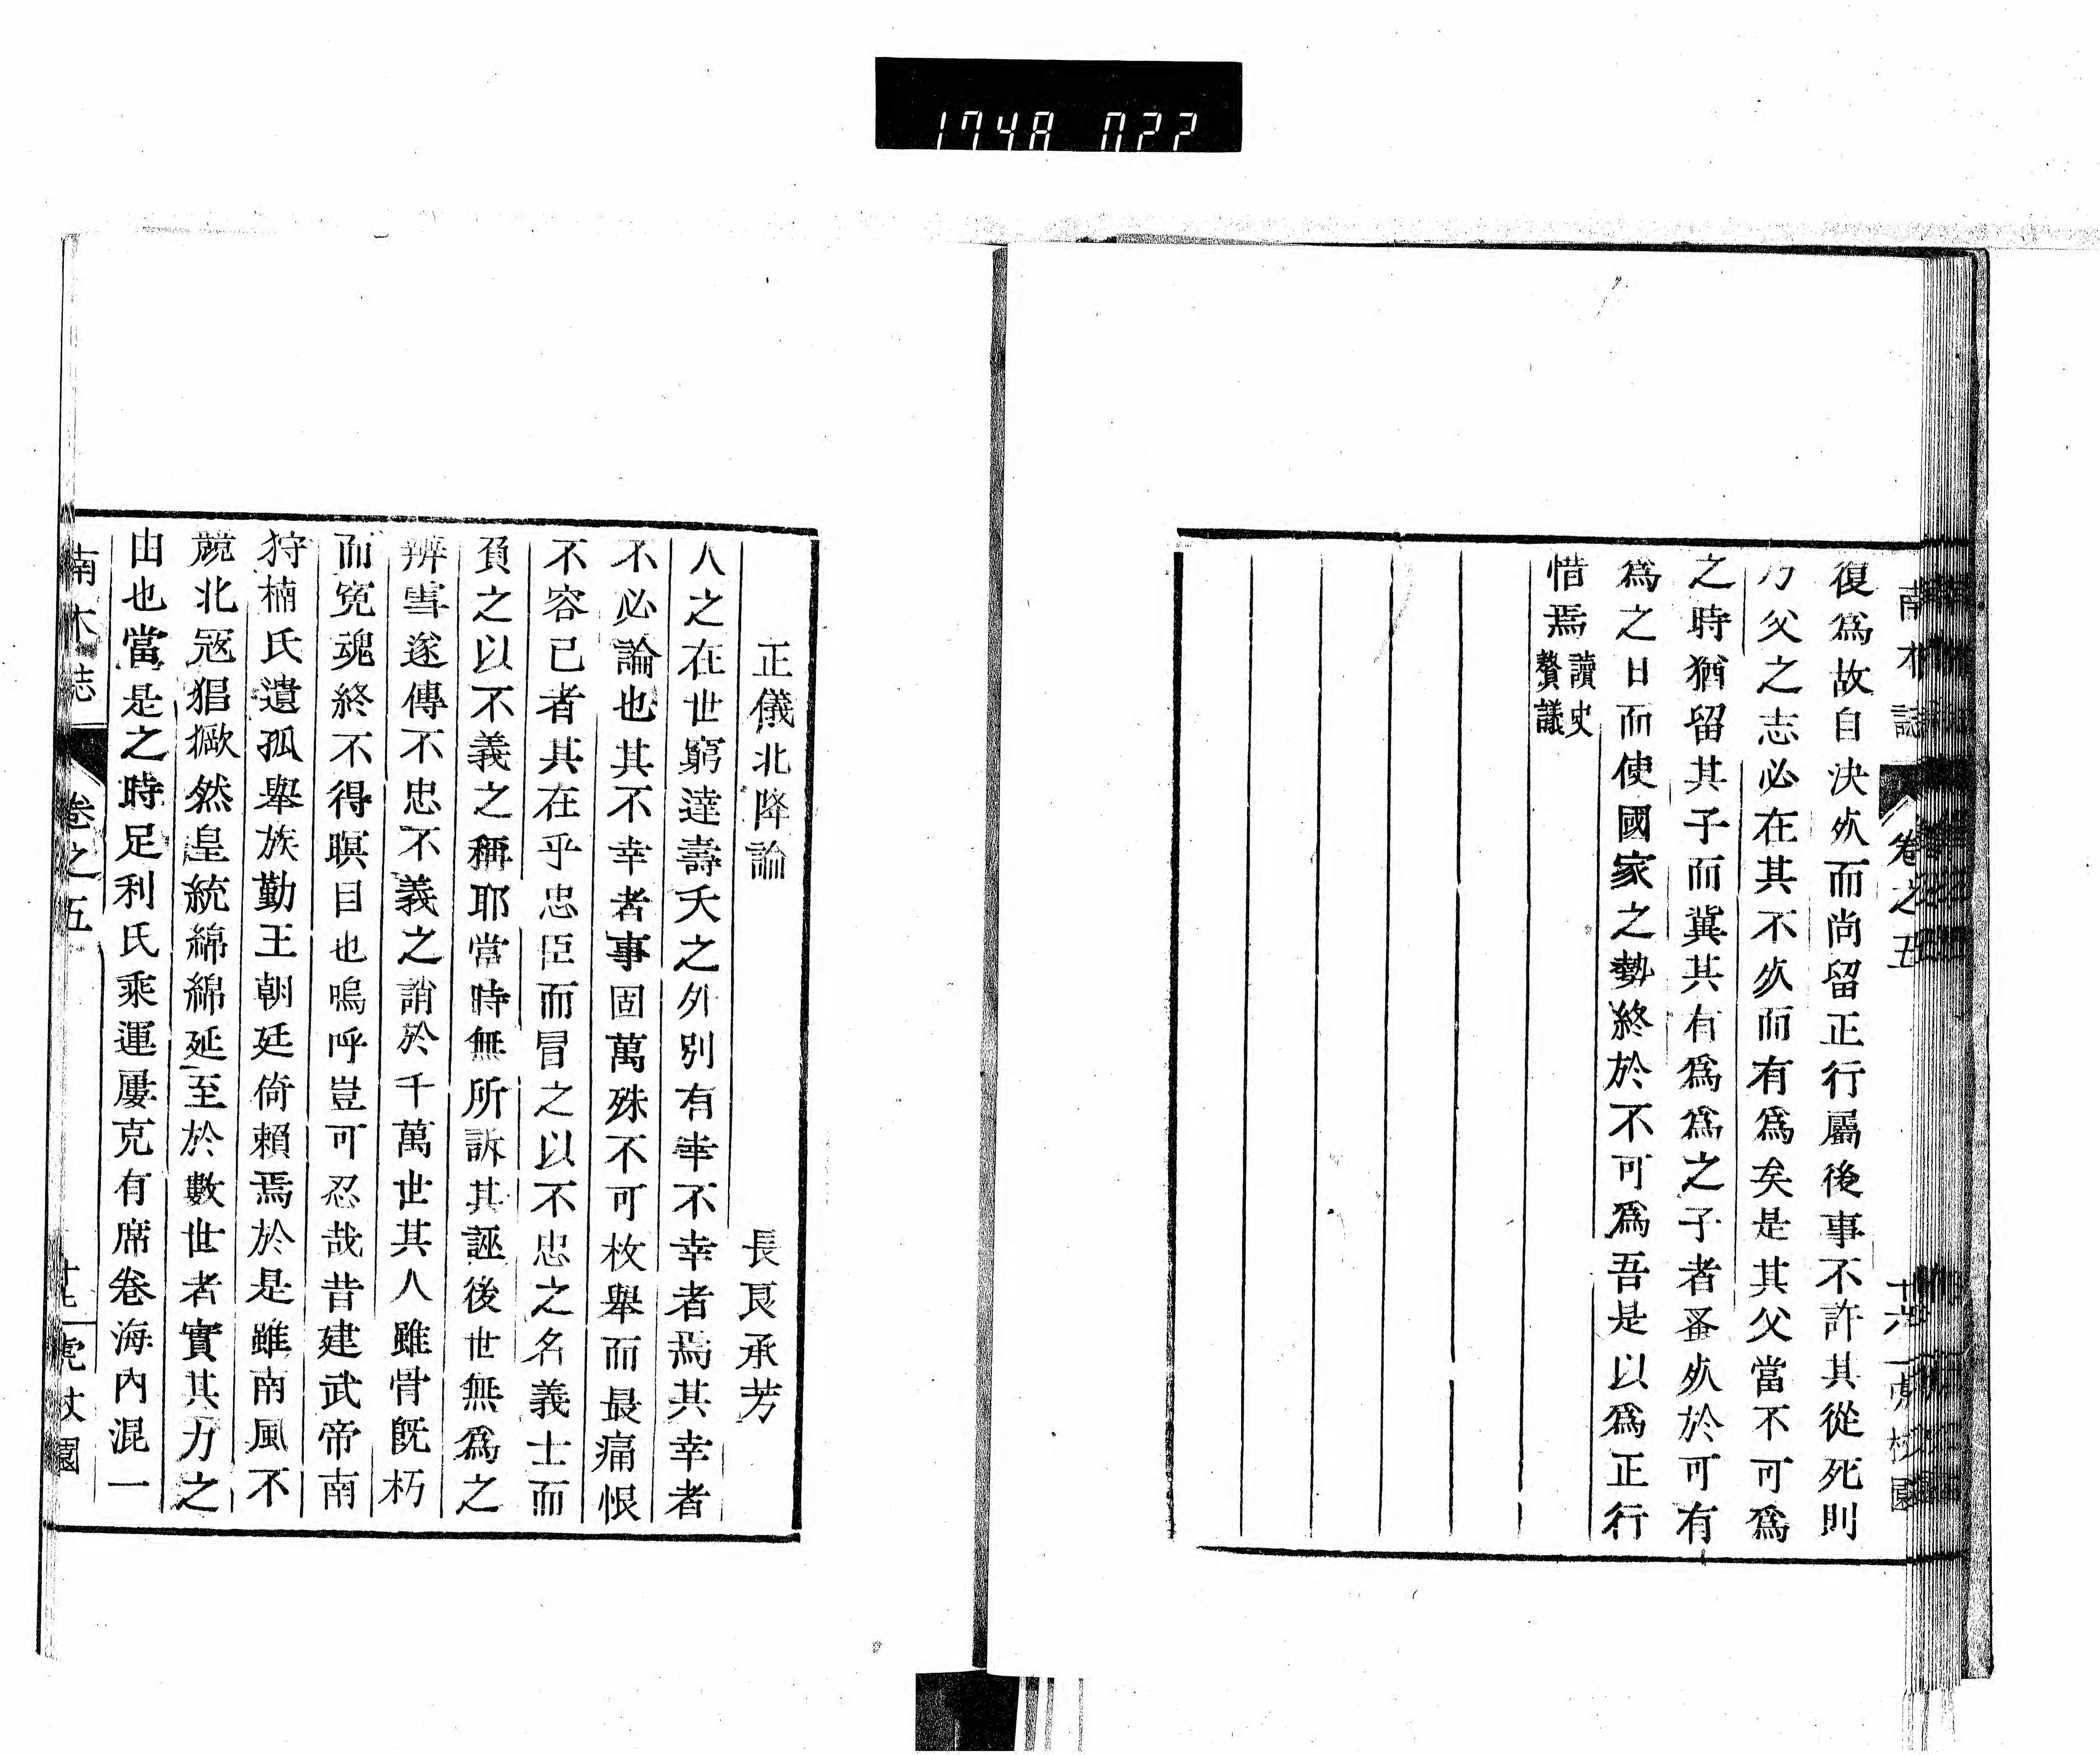 1748 022
南木誌
卷之五
十六
復爲故自決㱔而尚留正行屬後事不許其從死則
乃父之志必在其不㱔而有爲矣是其父當不可爲
之時猶留其子而冀其有爲爲之子者蚤㱔於可有
爲之日而使國家之勢終於不可爲吾是以爲正行
惜焉讀史贅議
正儀北降論
長良承芳
人之在世窮達壽夭之外別有幸不幸者焉其幸者
不必論也其不幸者事固萬殊不可枚舉而最痛恨
不容已者其在乎忠臣而冒之以不忠之名義士而
負之以不義之稱耶當時無所訴其誣後世無爲之
辨雪遂傳不忠不義之誚於千萬世其人雖骨旣朽
而冤魂終不得瞑目也嗚呼豈可忍哉昔建武帝南
狩楠氏遺孤舉族勤王朝廷倚賴焉於是雖南風不
競北寇猖獗然皇統綿綿延至於數世者實其力之
由也當是之時足利氏乘運屢克有席卷海內混一
南木誌
卷之五
十七
虎杖園